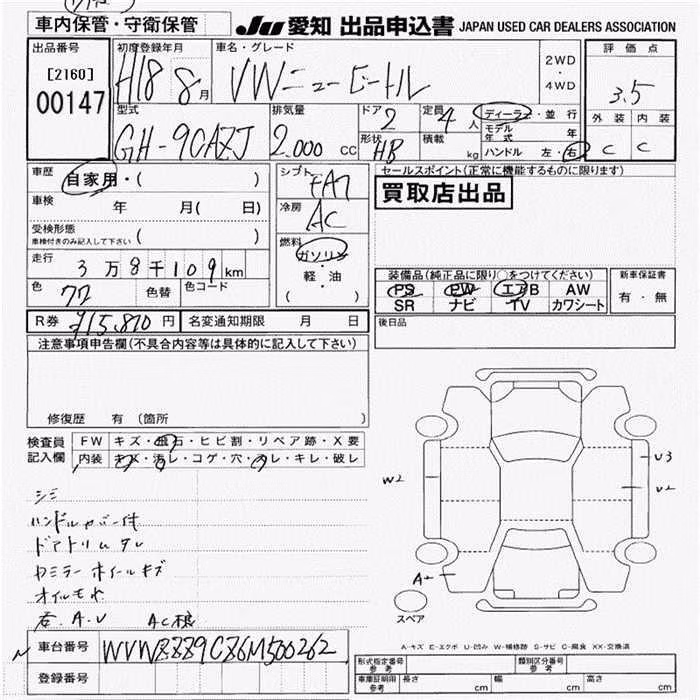 車内保管・守衛保管
JU 愛知 出品申込書 JAPAN USED CAR DEALERS ASSOCIATION
出品番号 初度登録年月 車名・グレード 評価点
[2160] H18 8月 VWニュービートル 2WD・4WD 3.5
00147
型式 排気量 ドア 2 定員 4人 ディーラー・並行 外装 内装
GH-9CAZJ 2.000 CC 形状 HB 積載 kg モデル年式 年 C C
ハンドル 左・右
車歴 自家用・( ) シフト FAT セールスポイント(正常に機能するものに限ります)
買取店出品
車検 年 月( 日) 冷房 AC
受検形態
車検付きのみ記入して下さい ( )
燃料 ガソリン・軽・油 ( )
走行 3万8千109km
色 77 色替 色コード
装備品(純正品に限り○をつけてください) 新車保証書
PS PW エアB AW 有・無
SR ナビ TV カワシート
R券 ¥15,870円 名変通知期限 月 日 後日品
注意事項申告欄(不具合内容等は具体的に記入して下さい)
修復歴 有 (箇所 )
検査員 FW キズ・飛石・ヒビ割・リペア跡・X要
記入欄 内装 キズ・汚レ・コゲ・穴・スレ・キレ・破レ
シミ
ハンドルカバー付
ドアトリムタレ
カミラーホイールキズ
オイルモレ
A.U AC
W2
U3
U2
A2
スペア
A-キズ E-エクボ U-凹み W-補修跡 S-サビ C-腐食 XX-交換済
車台番号 WVWZZZ9CZ6M500262
登録番号
形式指定番号 参考 類別区分番号 参考
車庫証明用 参考 長さ cm 幅 cm 高さ cm